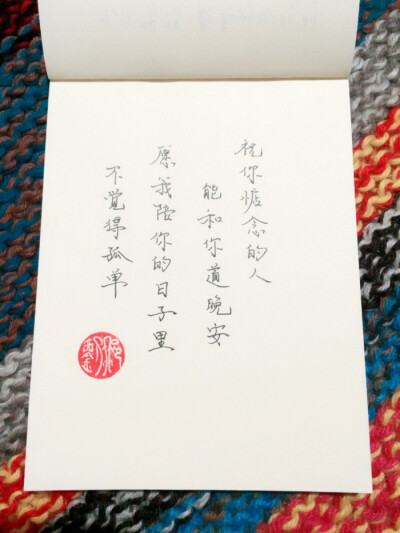 祝你惦念的人
能和你道晚安
愿我陪你的日子里
不覺得孤单